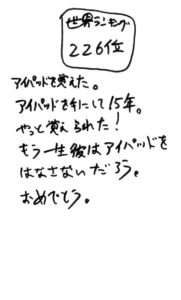 世界ランキング
226位
アイパッドを覚えた。
アイパッドを手にして15年。
やっと覚えられた！
もう一生彼はアイパッドを
はなさないだろう。
おめでとう。